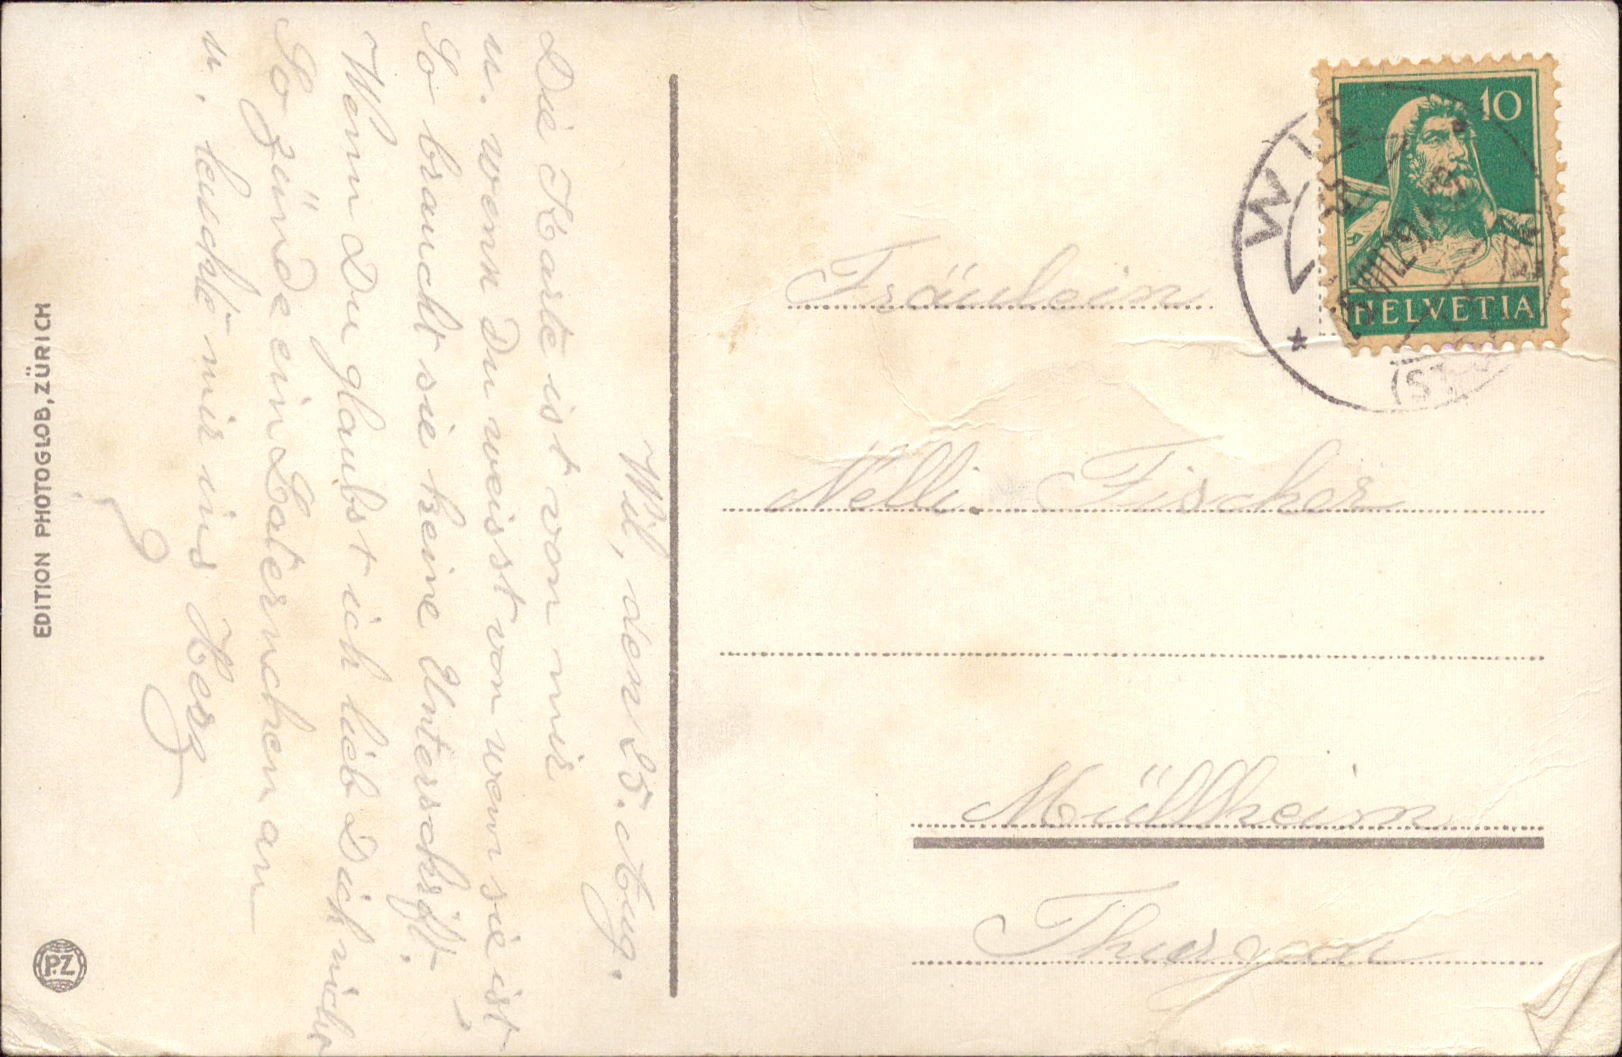 Wil, den 25. Aug.
Die Karte ist von mir
u. wenn Du weisst von wem sie ist,
So braucht sie keine Unterschrift.
Wenn Du glaubst ich lieb Dich nicht
So zünde ein Laternchen an
u. leuchte mir ins Herz
EDITION PHOTOGLOB, ZÜRICH
PZ
10
HELVETIA
WIL
(ST.
Fräulein
Nelli Fischer
Müllheim
Thurgau